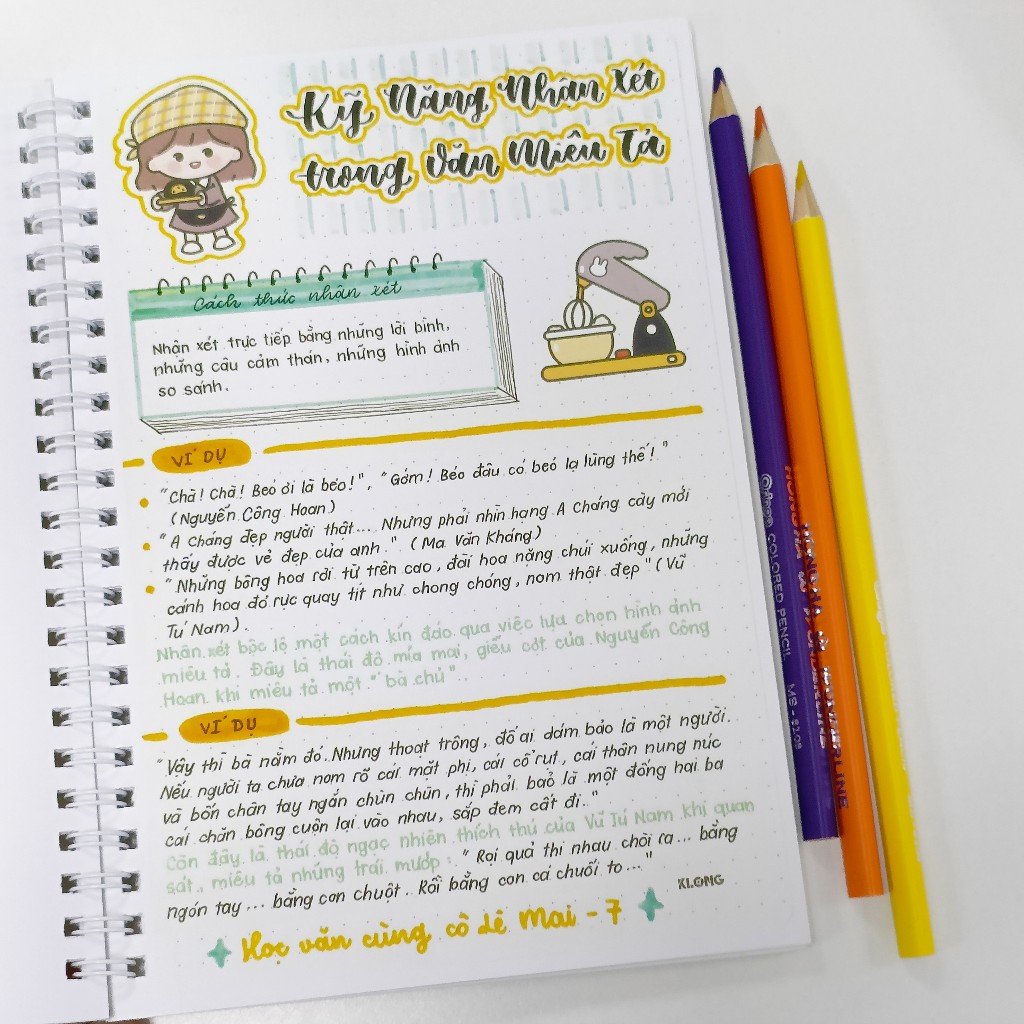 Kỹ Năng Nhận Xét
trong Văn Miêu Tả
Cách thức nhận xét
Nhận xét trực tiếp bằng những lời bình,
những câu cảm thán, những hình ảnh
so sánh.
VÍ DỤ
"Chà! Chà! Béo ơi là béo!", "Gớm! Béo đâu có béo lạ lùng thế!"
(Nguyễn Công Hoan)
"A Cháng đẹp người thật... Nhưng phải nhìn hạng A Cháng cày mới
thấy được vẻ đẹp của anh." (Ma Văn Kháng)
"Những bông hoa rơi từ trên cao, đài hoa nặng chúi xuống, những
cánh hoa đỏ rực quay tít như chong chóng, nom thật đẹp" (Vũ
Tú Nam).
Nhận xét bộc lộ một cách kín đáo qua việc lựa chọn hình ảnh
miêu tả. Đây là thái độ mỉa mai, giễu cợt của Nguyễn Công
Hoan khi miêu tả một "bà chủ"
VÍ DỤ
"Vậy thì bà nằm đó. Nhưng thoạt trông, đố ai dám bảo là một người.
Nếu người ta chưa nom rõ cái mặt phị, cái cổ rụt, cái thân nung núc
và bốn chân tay ngắn chùn chũn, thì phải bảo là một đống hai ba
cái chăn bông cuộn lại vào nhau, sắp đem cất đi."
Còn đây là thái độ ngạc nhiên thích thú của Vũ Tú Nam khi quan
sát, miêu tả những trái mướp: "Rọi quả thi nhau chòi ra... bằng
ngón tay... bằng con chuột. Rồi bằng con cá chuối to..."
KLONG
Học văn cùng cô Lê Mai - 7
COLORED PENCIL MS-8109